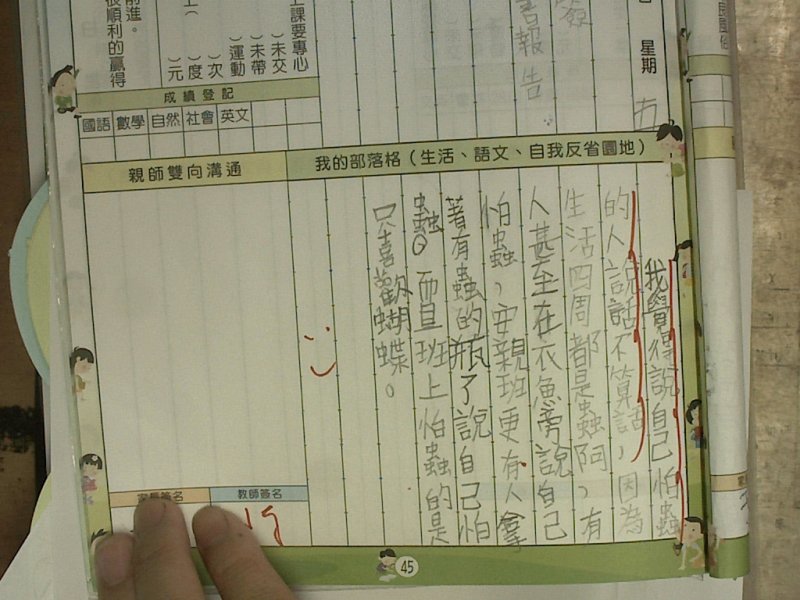 星期 五
報告
上課要專心
( )未交
( )未帶
( )運動
( )次
( )度
( )元
前進。
很順利的贏得
成績登記
國語 數學 自然 社會 英文
我的部落格(生活、語文、自我反省園地)
親師雙向溝通
我覺得說自己怕蟲
的人說話不算話,因為
生活四周都是蟲阿,有
人甚至在衣魚旁說自己
怕蟲,安親班更有人拿
著有蟲的瓶了說自己怕
蟲。而且班上怕蟲的是
只喜歡蝴蝶。
家長簽名
教師簽名
45